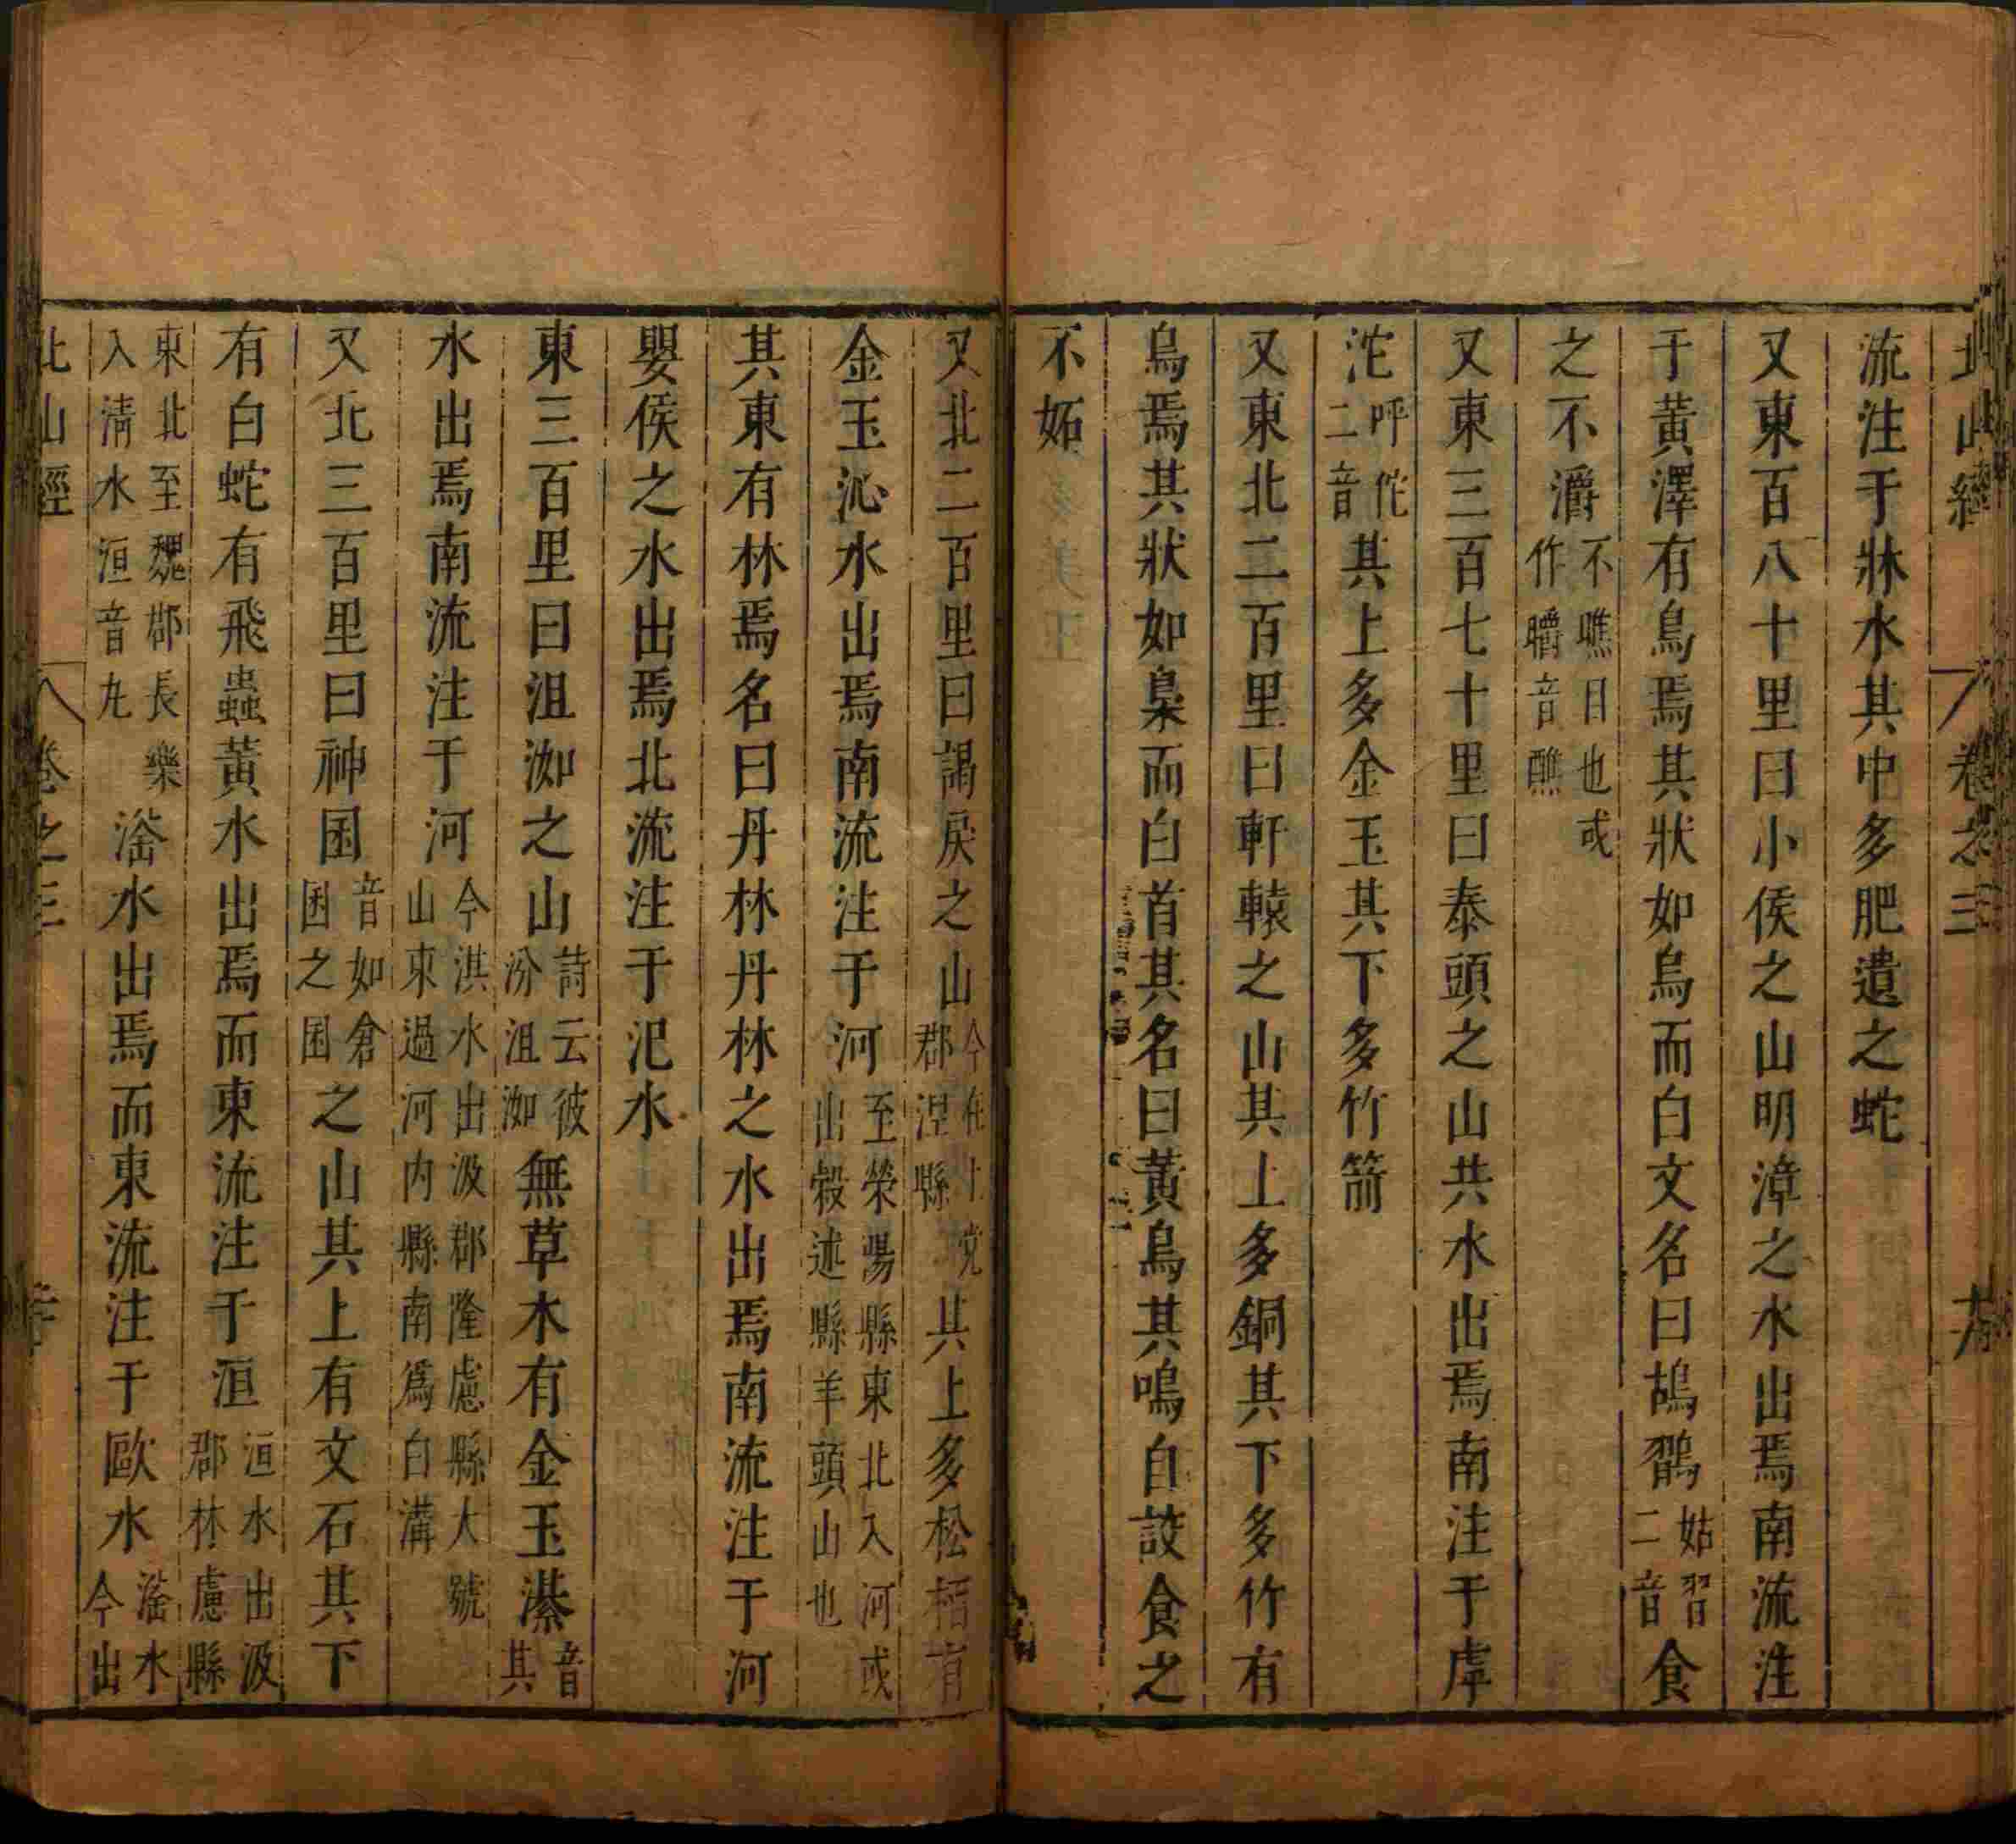 北山經 卷之三 十九
流注于牀水其中多肥遺之蛇
又東百八十里曰小侯之山明漳之水出焉南流注
于黃澤有鳥焉其狀如烏而白文名曰鴣鸐姑習二音食
之不灂不瞧目也或作㬭音醮
又東三百七十里曰泰頭之山共水出焉南注于虖
沱呼佗二音其上多金玉其下多竹箭
又東北二百里曰軒轅之山其上多銅其下多竹有
鳥焉其狀如梟而白首其名曰黃鳥其鳴自詨食之
不妬
又北二百里曰謁戾之山今在上党郡涅縣其上多松栢有
金玉沁水出焉南流注于河至滎陽縣東北入河或出穀述縣羊頭山也
其東有林焉名曰丹林丹林之水出焉南流注于河
嬰侯之水出焉北流注于汜水
東三百里曰沮洳之山詩云彼汾沮洳無草木有金玉濝音其
水出焉南流注于河今淇水出汲郡隆慮縣大號山東過河内縣南爲白溝
又北三百里曰神囷音如倉囷之囷之山其上有文石其下
有白蛇有飛蟲黃水出焉而東流注于洹洹水出汲郡林慮縣
東北至魏郡長樂入清水洹音丸滏水出焉而東流注于歐水滏水今出
北山經 卷之三